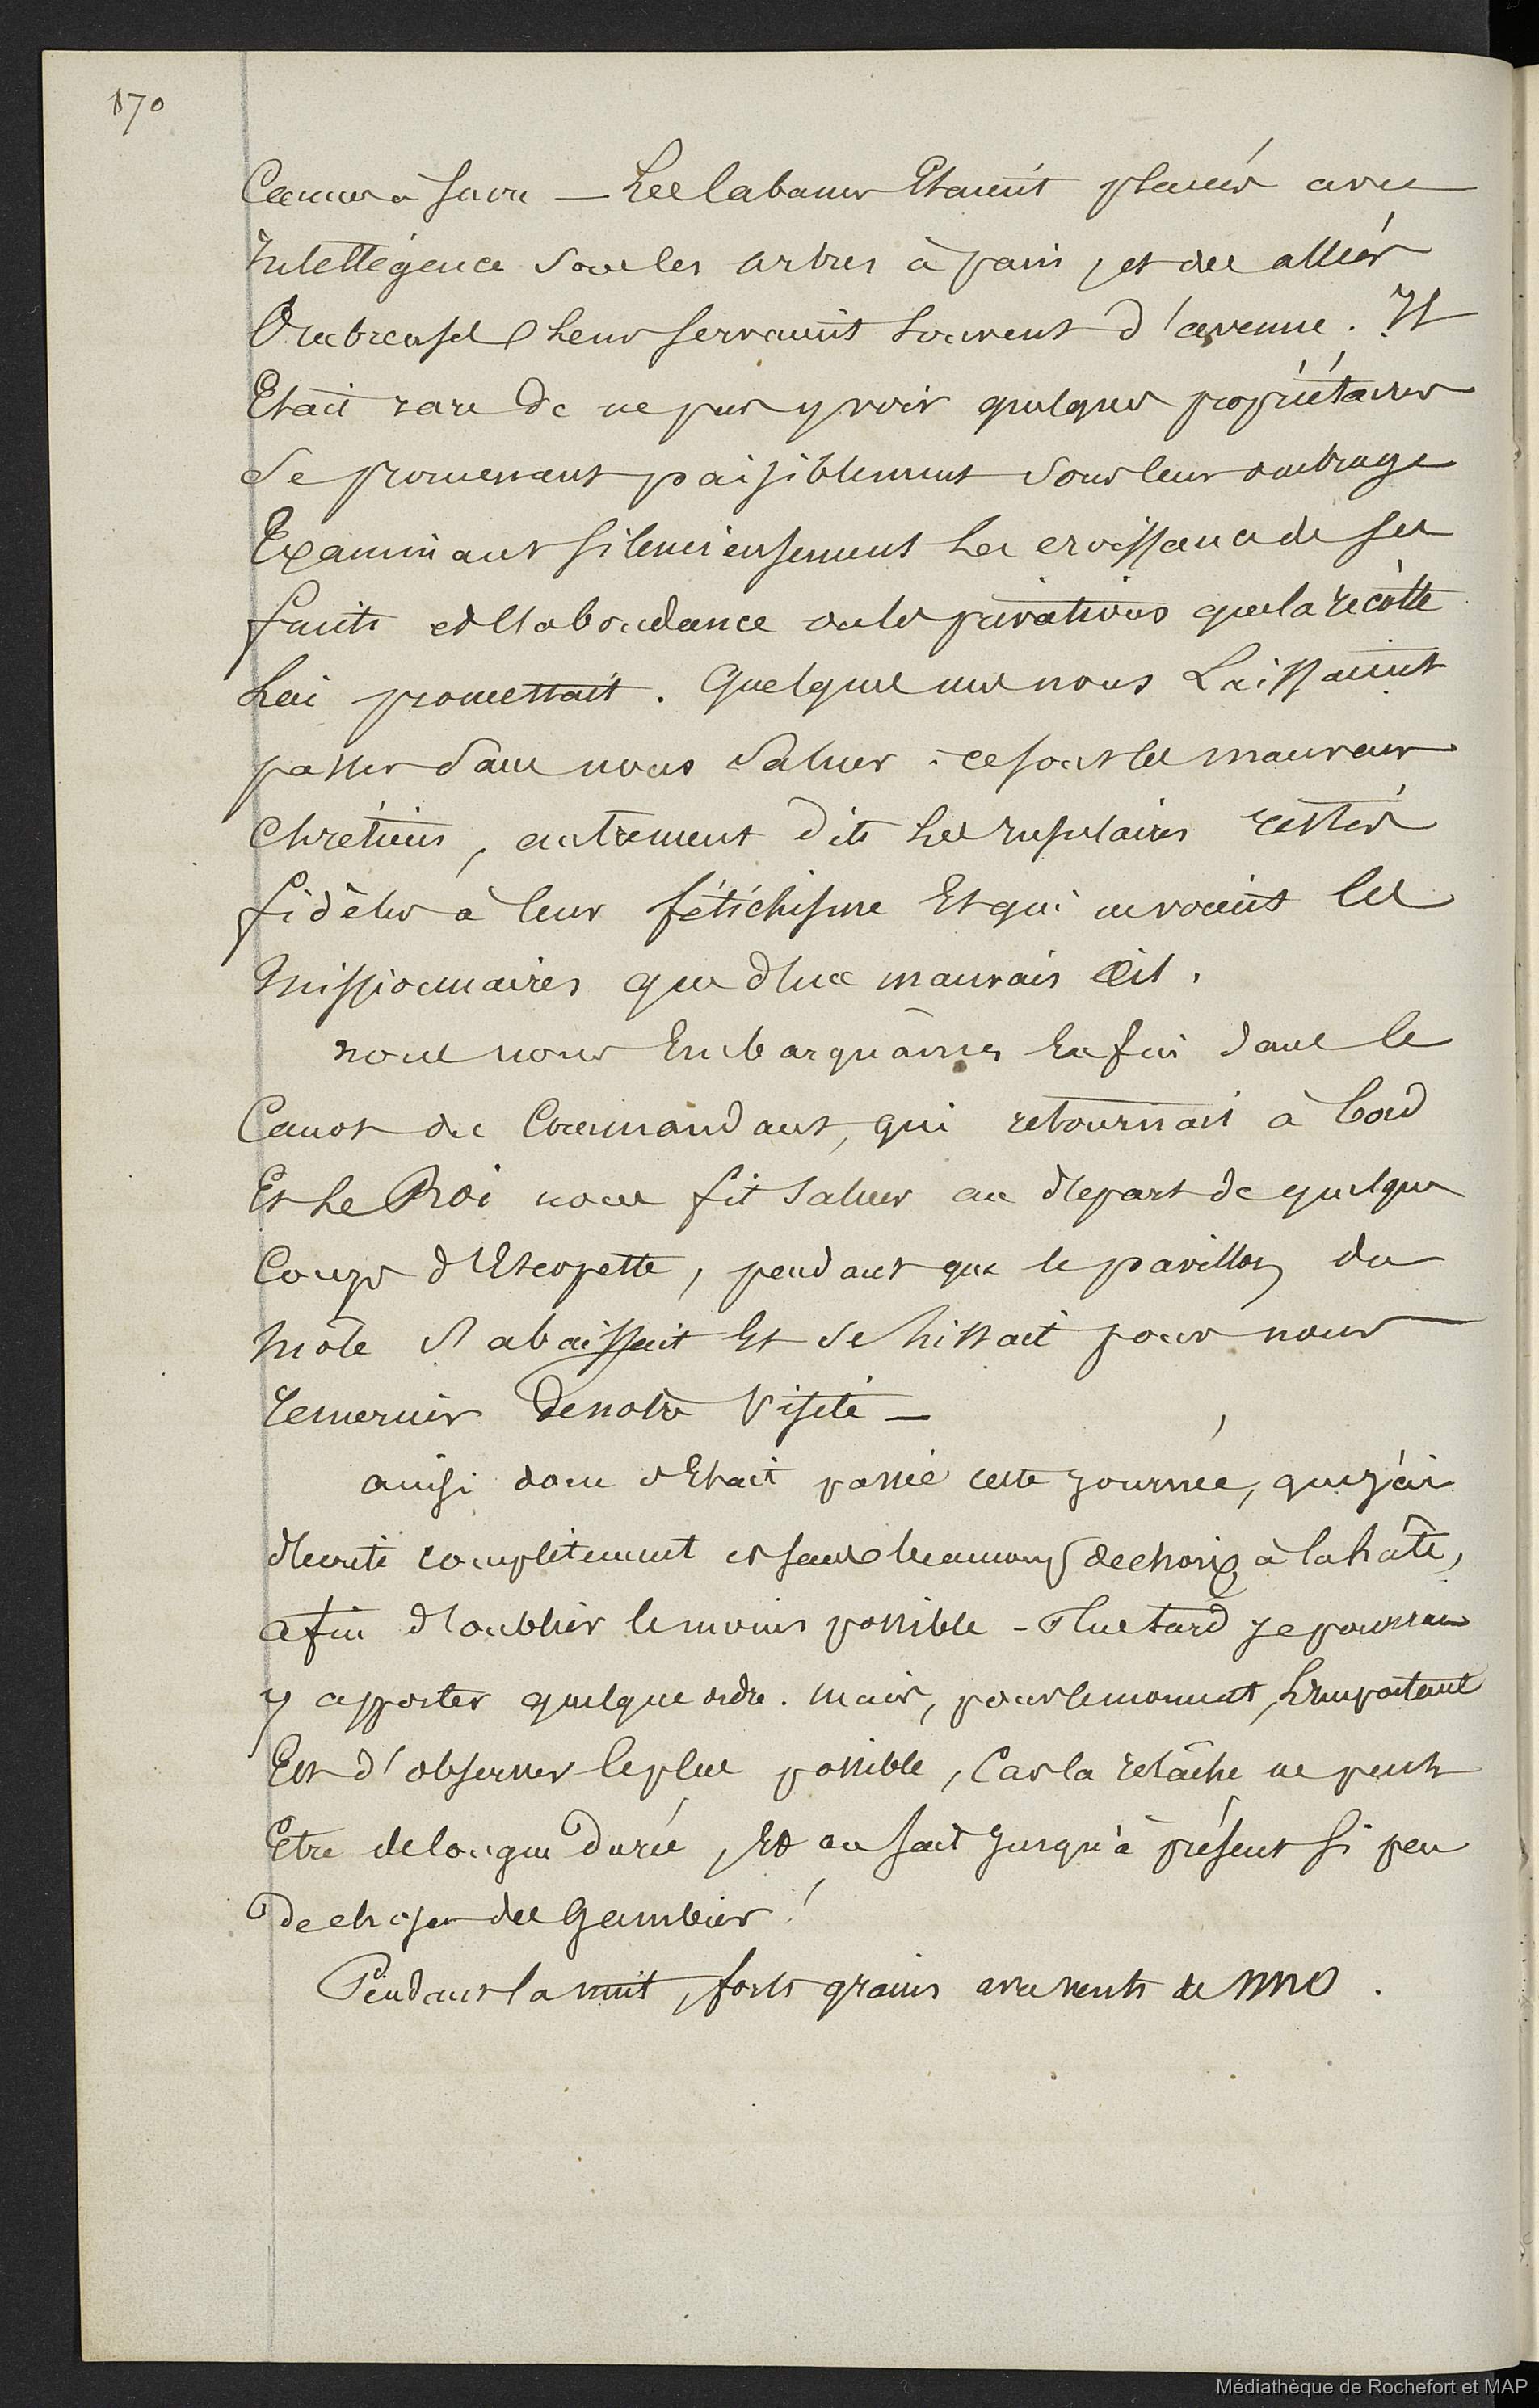 170
Cannes à sucre — Les cabanes Etaient placées avec
Intelligence sous les arbres à pain, et des allées
Ombreuses Leur servaient souvent d'avenue. Il
Etait rare de ne pas y voir quelques propriétaires
se promenant paisiblement sous leur ombrage
Examinant silencieusement La croissance de ses
fruits et l'abondance ou les privations que la récolte
Lui promettait. Quelques uns nous Laissaient
passer sans nous saluer : ce sont les mauvais
chrétiens, autrement dits Les insulaires restés
fidèles à leur fétichisme Et qui ne voient les
Missionnaires que d'un mauvais œil.
nous nous Embarquâmes Enfin dans le
Canot du Commandant, qui retournait à bord
Et Le Roi nous fit saluer au départ de quelques
Coups d'Escopette, pendant que le pavillon du
Môle s'abaissait Et se hissait pour nous
remercier de notre Visite —
ainsi donc s'Etait passée cette journée, que j'ai
décrite complètement et sans beaucoup de choix à la hâte,
afin d'oublier le moins possible - Plus tard je pourrai
y apporter quelque ordre. Mais, pour le moment, L'important
Est d'observer le plus possible, Car la relâche ne peut
Etre de longue durée, Et on sait jusqu'à présent si peu
de choses des Gambier !
Pendant la nuit, forts grains avec vents de NNO.
Médiathèque de Rochefort et MAP